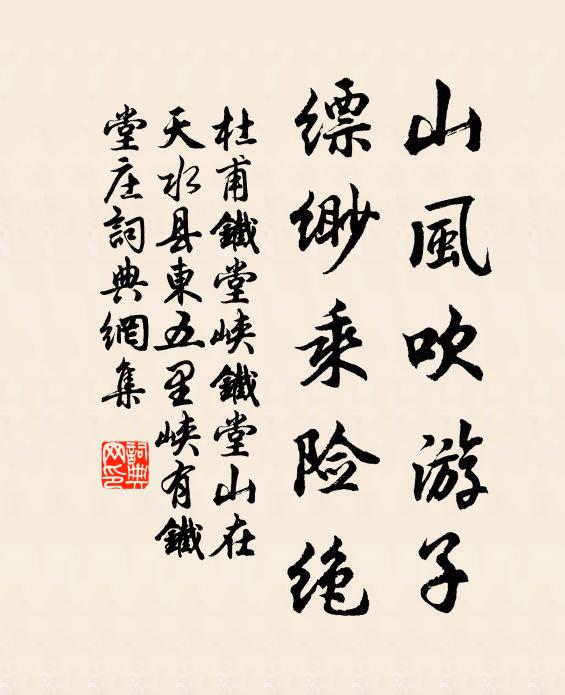 山風吹游子
缥缈乘险绝
杜甫鐵堂峡鐵堂山在
天水县東五里峡有鐵
堂庄詞典網集
詞典
网印